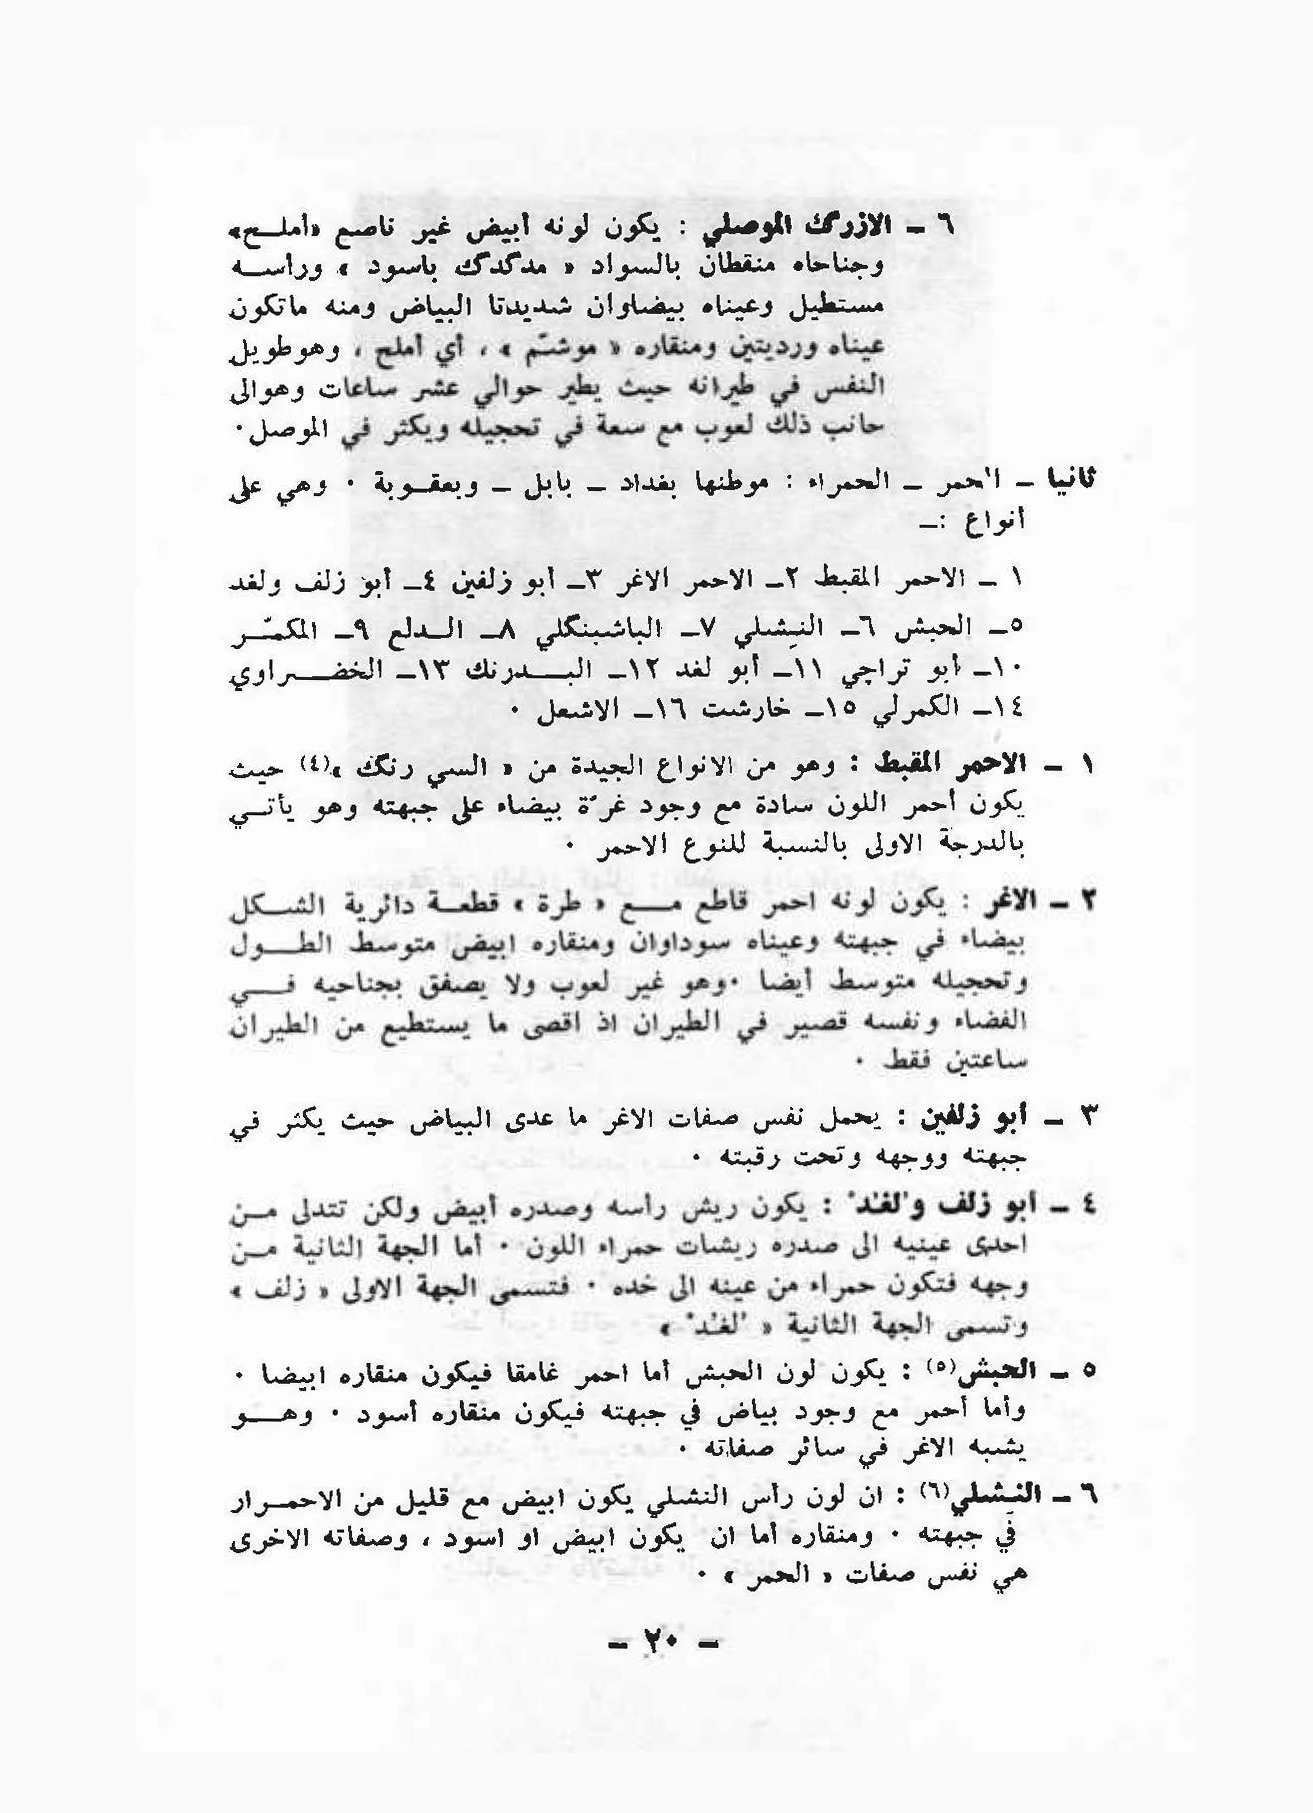 ٦ ـ الازرگ الموصلي : يكون لونه أبيض غير ناصع «أملـح»
وجناحاه منقطان بالسواد « مدگدگ باسود » ورأسـه
مستطيل وعيناه بيضاوان شديدتا البياض ومنه ماتكون
عيناه ورديتين ومنقاره « موشّم » ، أي أملح ، وهوطويل
النفس في طيرانه حيث يطير حوالي عشر ساعات وهوالى
جانب ذلك لعوب مع سعة في تحجيله ويكثر في الموصل ٠
ثانيا ـ الاحمر ـ الحمراء : موطنها بغداد ـ بابل ـ وبعقـوبة ٠ وهي على
أنواع :ـ
١ ـ الاحمر المقبط ٢ـ الاحمر الاغر ٣ـ أبو زلفين ٤ـ أبو زلف ولغد
٥ـ الحبش ٦ـ النِشلي ٧ـ الباشبنگلي ٨ـ الـدلع ٩ـ المكمّـر
١٠ـ أبو تراچي ١١ـ أبو لغد ١٢ـ البـدرنك ١٣ـ الخضـراوي
١٤ـ الكمرلي ١٥ـ خارشت ١٦ـ الاشعل ٠
١ ـ الاحمر المقبط : وهو من الانواع الجيدة من « السي رنگ »(٤) حيث
يكون أحمر اللون سادة مع وجود غرّة بيضاء على جبهته وهو يأتـي
بالدرجة الاولى بالنسبة للنوع الاحمر ٠
٢ ـ الاغر : يكون لونه احمر قاطع مـع « طرة » قطعـة دائرية الشـكل
بيضاء في جبهته وعيناه سوداوان ومنقاره ابيض متوسط الطـول
وتحجيله متوسط أيضا ٠وهو غير لعوب ولا يصفق بجناحيه فـي
الفضاء ونفسه قصير في الطيران اذ اقصى ما يستطيع من الطيران
ساعتين فقط ٠
٣ ـ أبو زلفين : يحمل نفس صفات الاغر ما عدى البياض حيث يكثر في
جبهته ووجهه وتحت رقبته ٠
٤ ـ أبو زلف ولُغُدْ : يكون ريش رأسه وصدره أبيض ولكن تتدلى مـن
احدى عينيه الى صدره ريشات حمراء اللون ٠ أما الجهة الثانية مـن
وجهه فتكون حمراء من عينه الى خده ٠ فتسمى الجهة الاولى « زلف »
وتسمى الجهة الثانية « لُغُدْ »
٥ ـ الحبش(٥) : يكون لون الحبش أما احمر غامقا فيكون منقاره ابيضا ٠
وأما أحمر مع وجود بياض في جبهته فيكون منقاره أسود ٠ وهـو
يشبه الاغر في سائر صفاته ٠
٦ ـ النِشلي(٦) : ان لون رأس النشلي يكون ابيض مع قليل من الاحمـرار
في جبهته ٠ ومنقاره أما ان يكون ابيض او اسود ، وصفاته الاخرى
هي نفس صفات « الحمر » ٠
ـ ٢٠ ـ